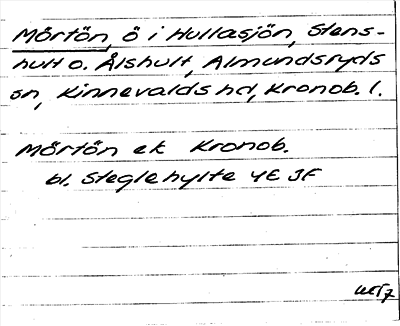 Mörtön, ö i Hullasjön, Stens-
hult o. Ålshult, Almundsryds
sn, Kinnevalds hd, Kronob. l.
Mörtön ek Kronob.
bl. Steglehylte 4E 3f